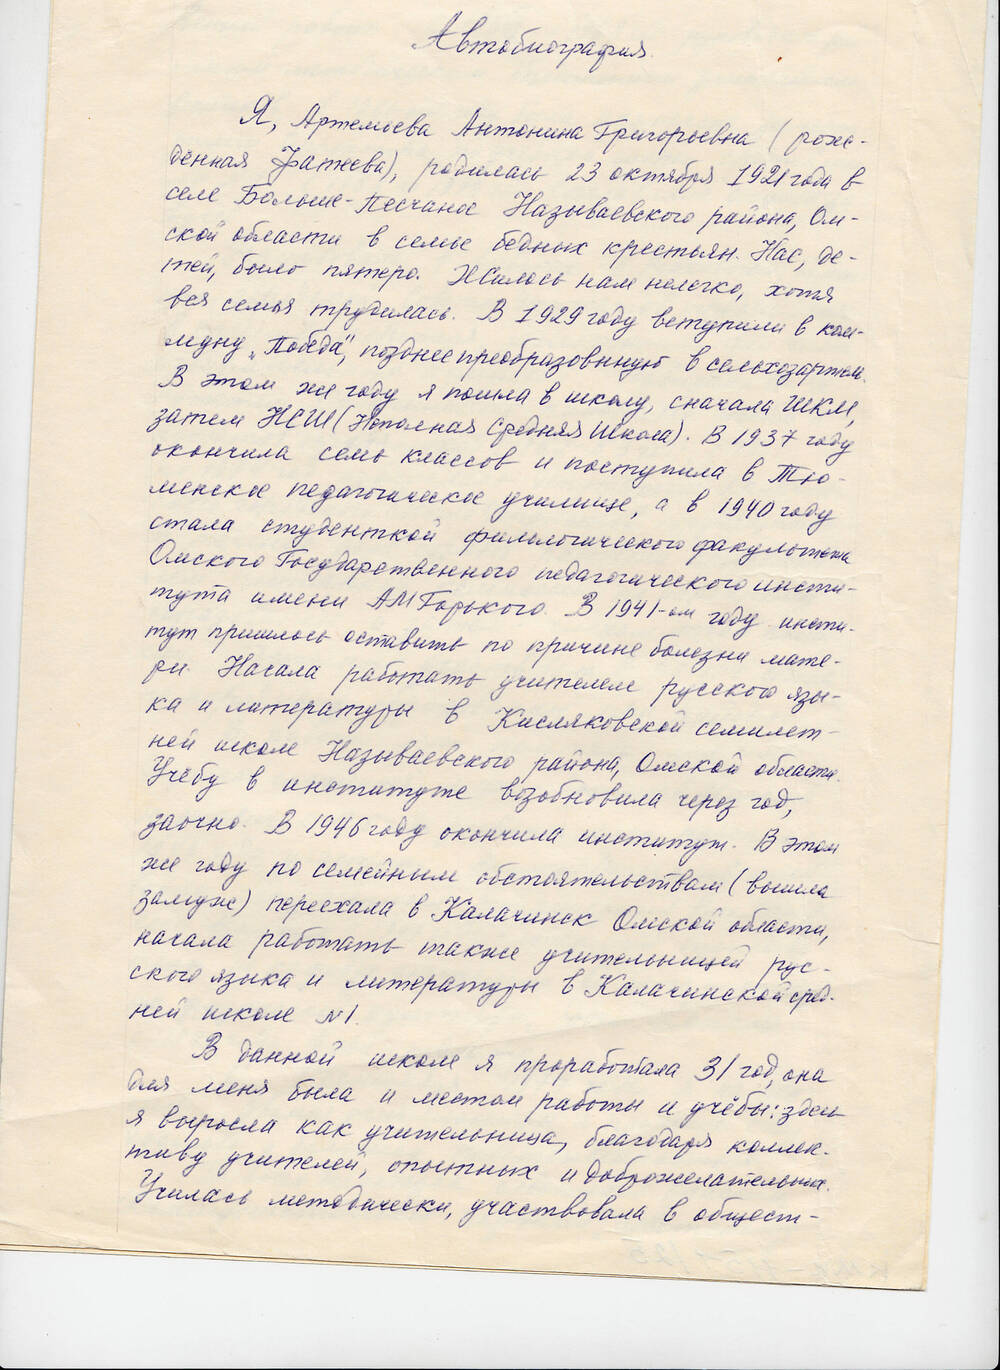 Автобиография.
Я, Артемьева Антонина Григорьевна (рож-
дённая Фатеева), родилась 23 октября 1921 года в
селе Больше-Песчаное Называевского района, Ом-
ской области в семье бедных крестьян. Нас, де-
тей, было пятеро. Жилось нам нелегко, хотя
вся семья трудилась. В 1929 году вступили в ком-
муну „Победа", позднее преобразовнную в сельхозартель.
В этом же году я пошла в школу, сначала ШКМ,
затем НСШ (Неполная Средняя Школа). В 1937 году
окончила семь классов и поступила в Тю-
менское педагогическое училище, а в 1940 году
стала студенткой филологического факультета
Омского Государственного педагогического инсти-
тута имени АМ Горького. В 1941-ом году инсти-
тут пришлось оставить по причине болезни мате-
ри. Начала работать учителем русского язы-
ка и литературы в Кисляковской семилет-
ней школе Называевского района, Омской области.
Учёбу в институте возобновила через год,
заочно. В 1946 году окончила институт. В этом
же году по семейным обстоятельствам (вышла
замуж) переехала в Калачинск Омской области,
начала работать также учительницей рус-
ского языка и литературы в Калачинской сред-
ней школе №1.
В данной школе я проработала 31 год, она
для меня была и местом работы и учёбы: здесь
я выросла как учительница, благодаря коллек-
тиву учителей, опытных и доброжелательных.
Училась методически, участвовала в общест-